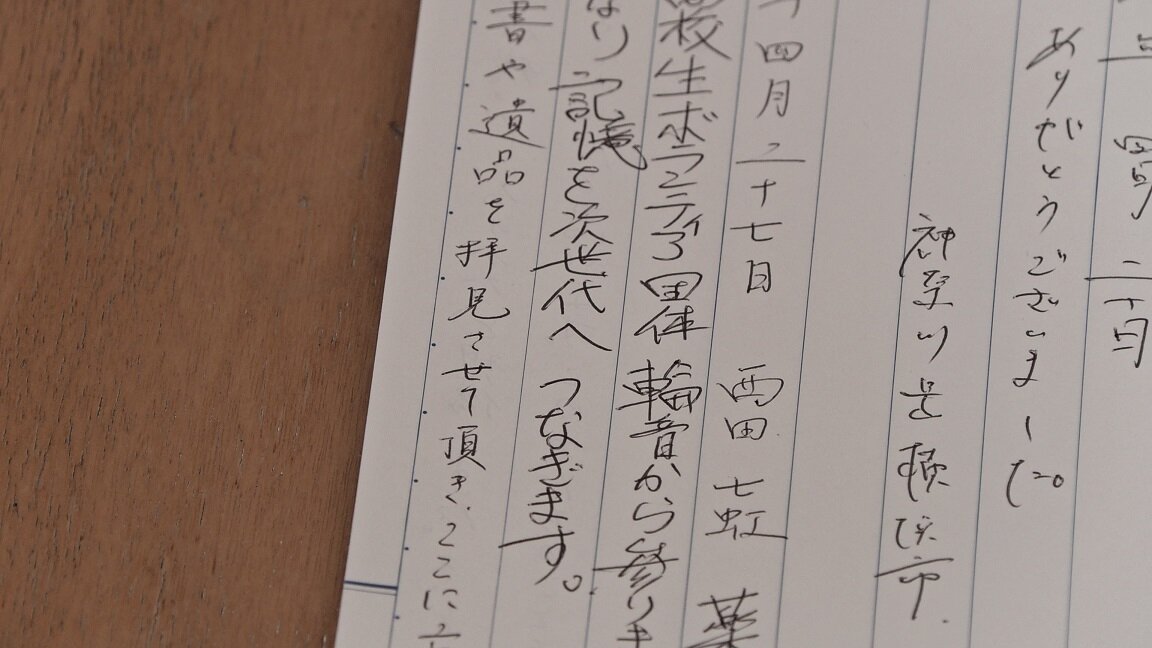 二十日
ありがとうございました。
神奈川県横浜市
四月二十七日 西田七虹
校生ボランティア団体 輪音から参りま
なり記憶を次世代へ つなぎます。
書や遺品を拝見させて頂き、ここに